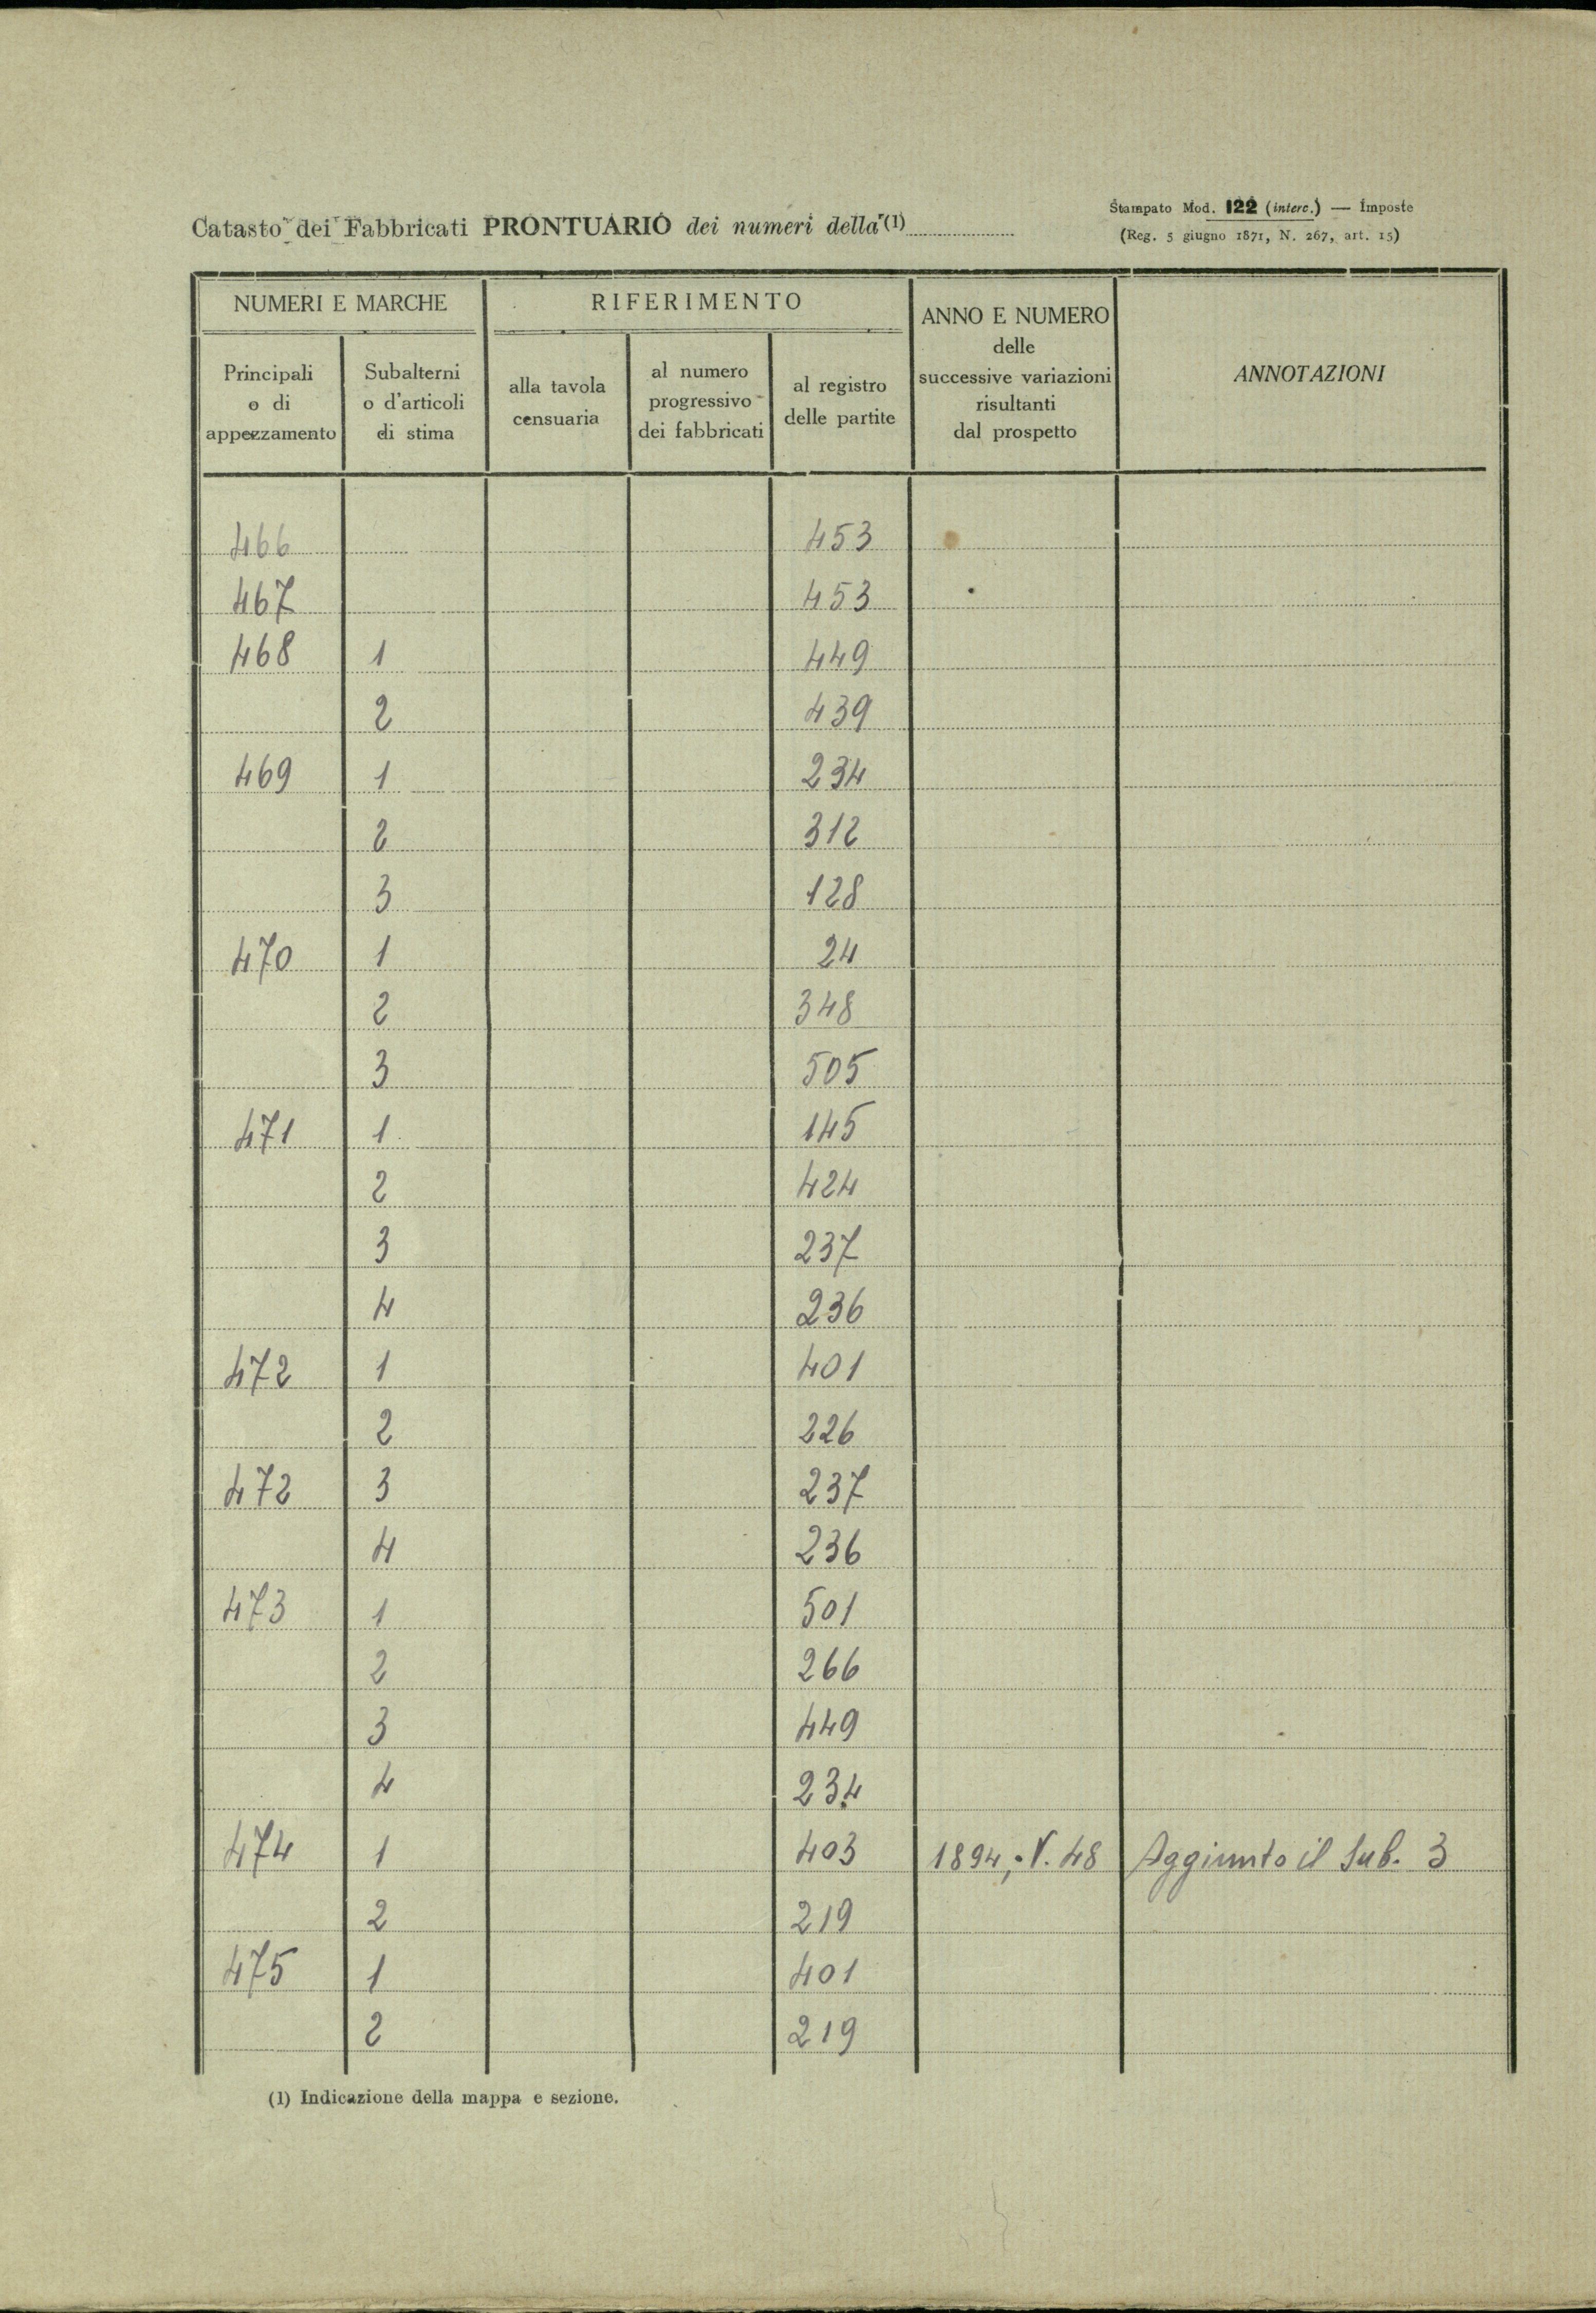 Catasto dei Fabbricati PRONTUARIO dei numeri della (1)
Stampato Mod. 122 (interc.) — Imposte
(Reg. 5 giugno 1871, N. 267, art. 15)
NUMERI E MARCHE
RIFERIMENTO
ANNO E NUMERO
delle
successive variazioni
risultanti
dal prospetto
ANNOTAZIONI
Principali
o di
appezzamento
Subalterni
o d'articoli
di stima
alla tavola
censuaria
al numero
progressivo
dei fabbricati
al registro
delle partite
466 453
467 453
468 1 449
2 439
469 1 234
2 312
3 128
470 1 24
2 348
3 505
471 1 145
2 424
3 237
4 236
472 1 401
2 226
472 3 237
4 236
473 1 501
2 266
3 449
4 234
474 1 403 1894, V. 48 Aggiunto il Sub. 3
2 219
475 1 401
2 219
(1) Indicazione della mappa e sezione.